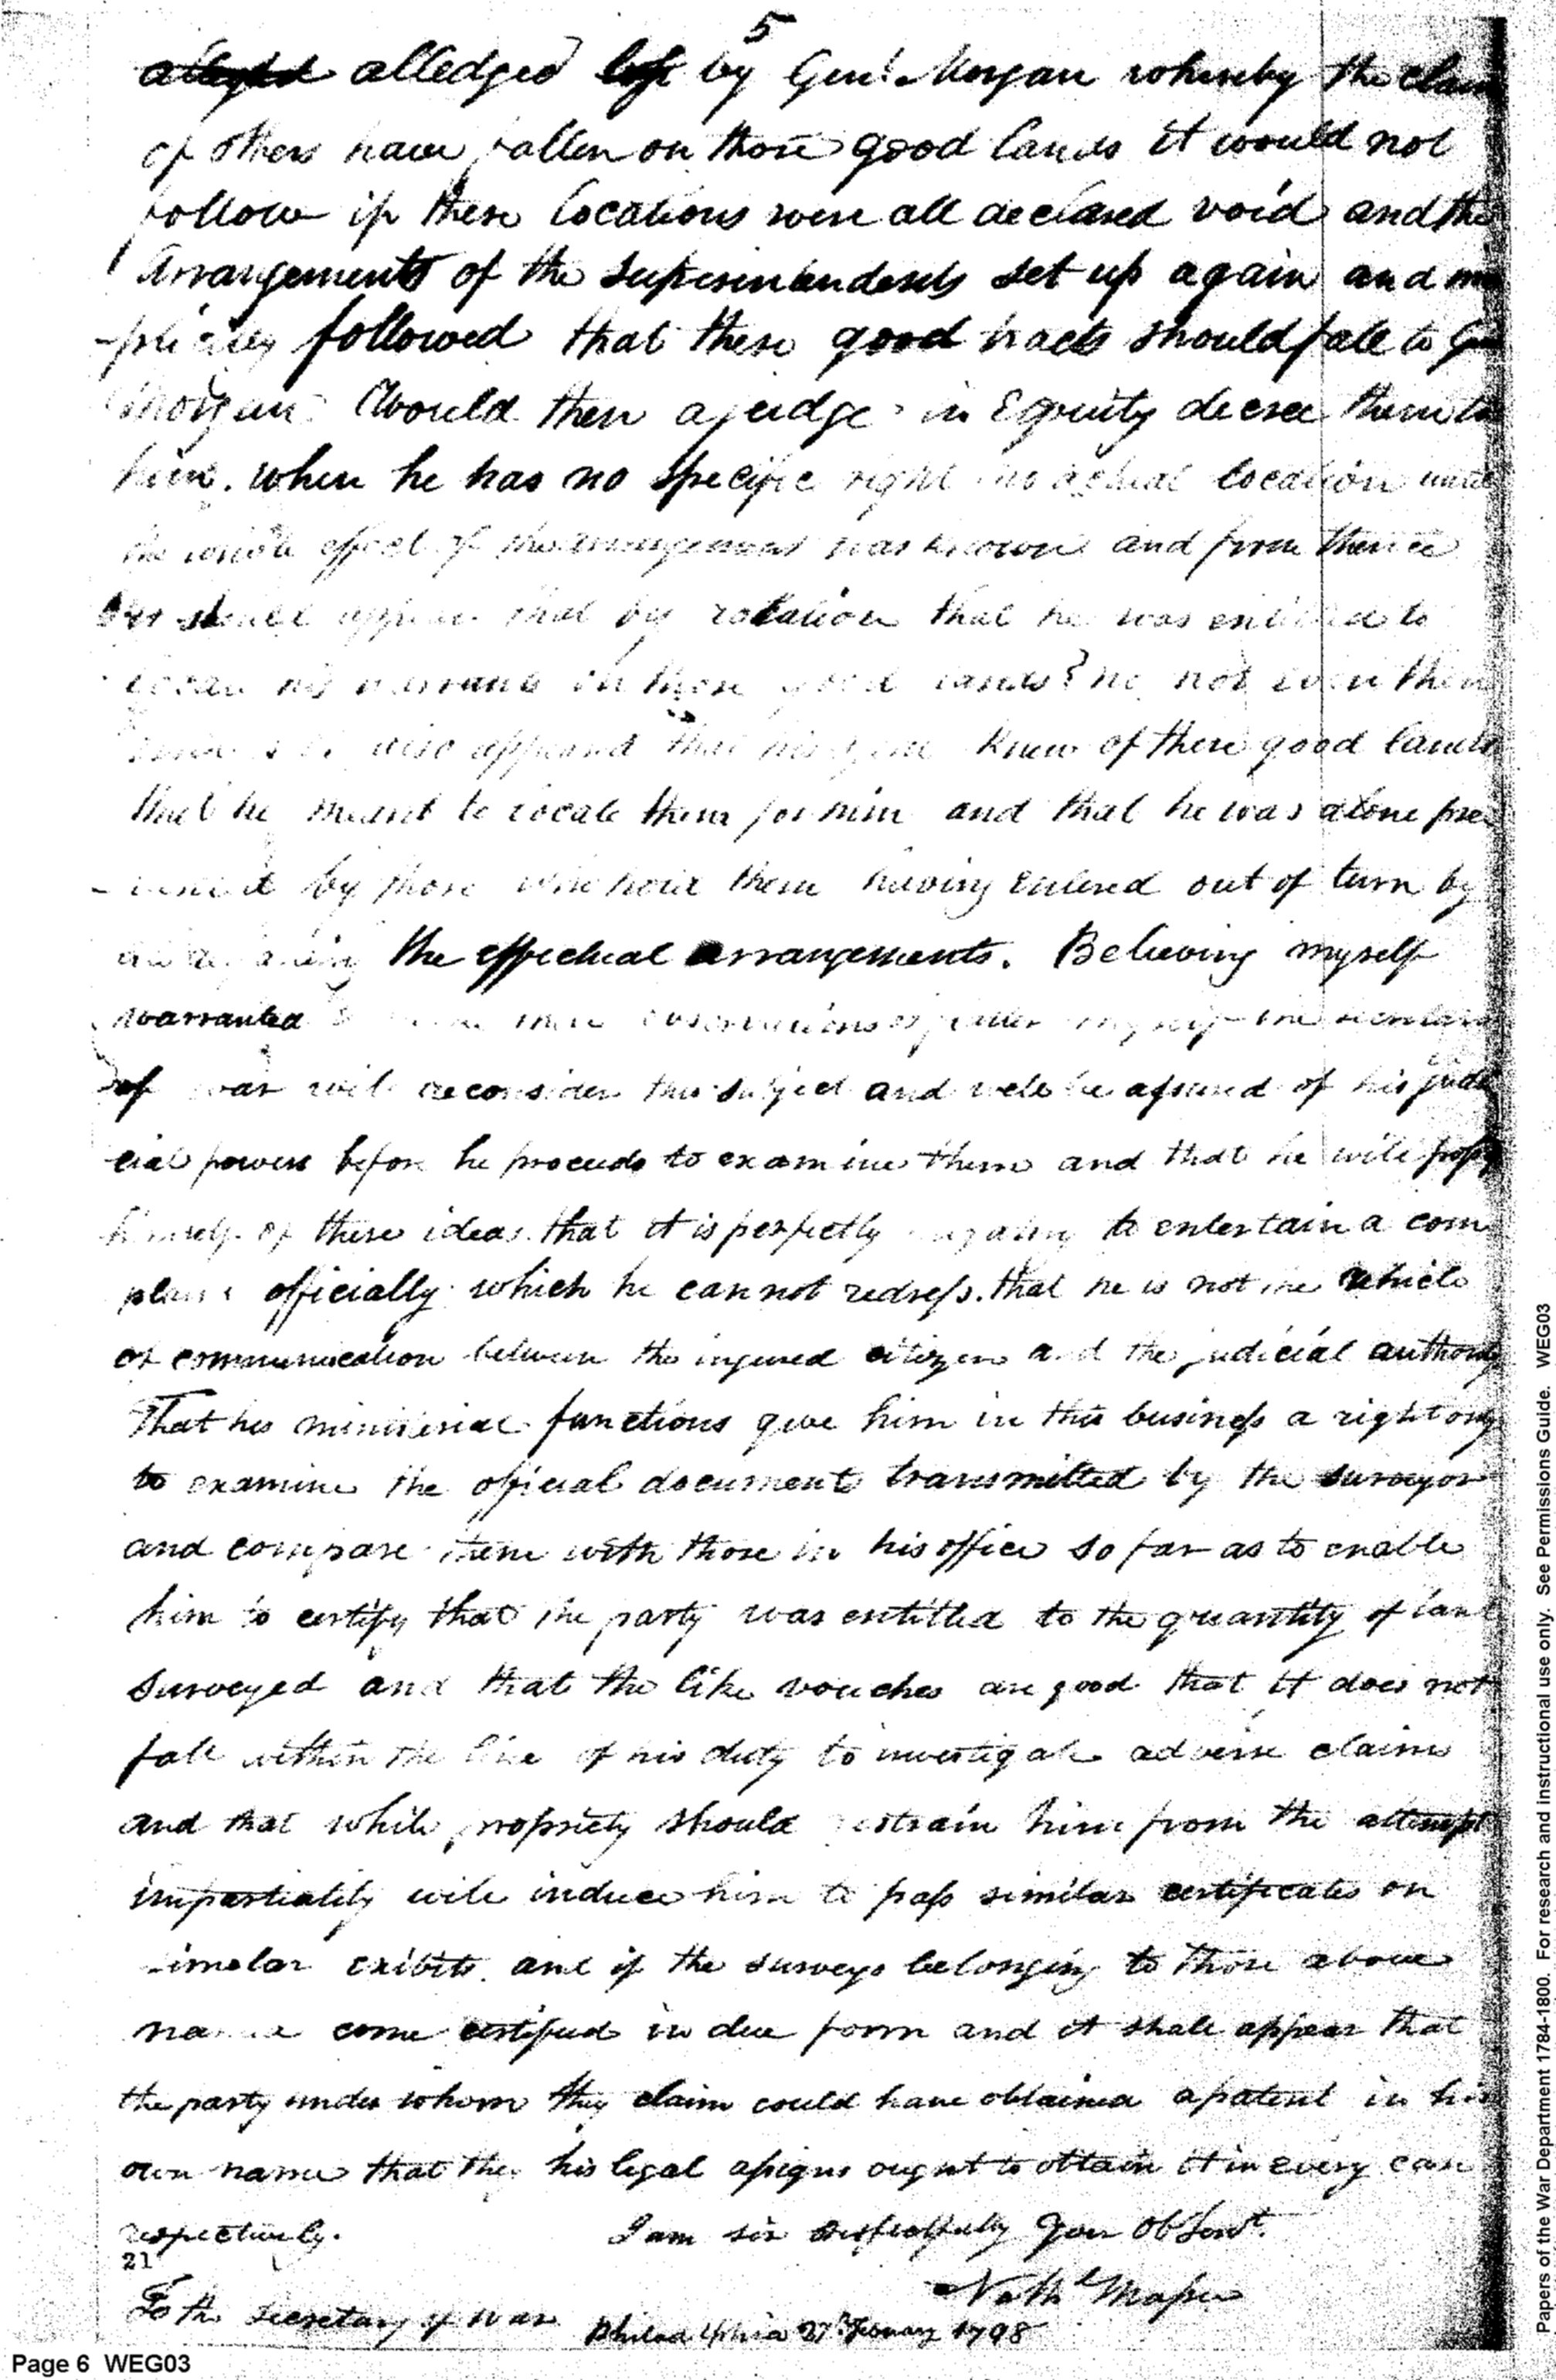 5
alledged by Genl. Morgan whereby the claim
of others have fallen on those good lands it would not
follow if these locations were all declared void and the
Arrangements of the superintendents set up again and
followed that these good tracts should fall to Genl
Morgan. Would then a judge in Equity decree them to
him. when he has no specific right no actual location until
the whole effect of the arrangement was known and from thence
should appear that by rotation that he was entitled to
locate his warrants in these good lands? no not even then
also appeared that his knew of these good lands
that he meant to locate them for him and that he was alone pre
-vented by those who hold them having entered out of turn by
the effectual arrangements. Believing myself
warranted these observations I flatter myself the secretary
of war will reconsider this subject and well be assured of his judi
cial powers before he proceeds to examine them and that he will possess
himself of these ideas. that it is perfectly nugatory to entertain a com
plaint officially which he cannot redress. that he is not the vehicle
of communication between the injured citizen and the judicial authority
That his ministerial functions give him in this business a right only
to examine the official documents transmitted by the surveyor
and compare them with those in his office so far as to enable
him to certify that the party was entitled to the quantity of land
surveyed and that the like vouches are good that it does not
fall within the line of his duty to investigate adverse claims
and that while propriety should restrain him from the attempt
impartiality will induce him to pass similar certificates on
simelar exibits. and if the surveys belonging to those above
named come certified in due form and it shall appear that
the party under whom they claim could have obtained a patent in his
own name that they his legal assigns ought to obtain it in every case
respectively. I am sir respectfully your Ob Servt.
21
Nathl Massie
To the Secretary of War Philadelphia 27th 1798
Page 6 WEG03
Papers of the War Department 1784-1800. For research and instructional use only. See Permissions Guide. WEG03